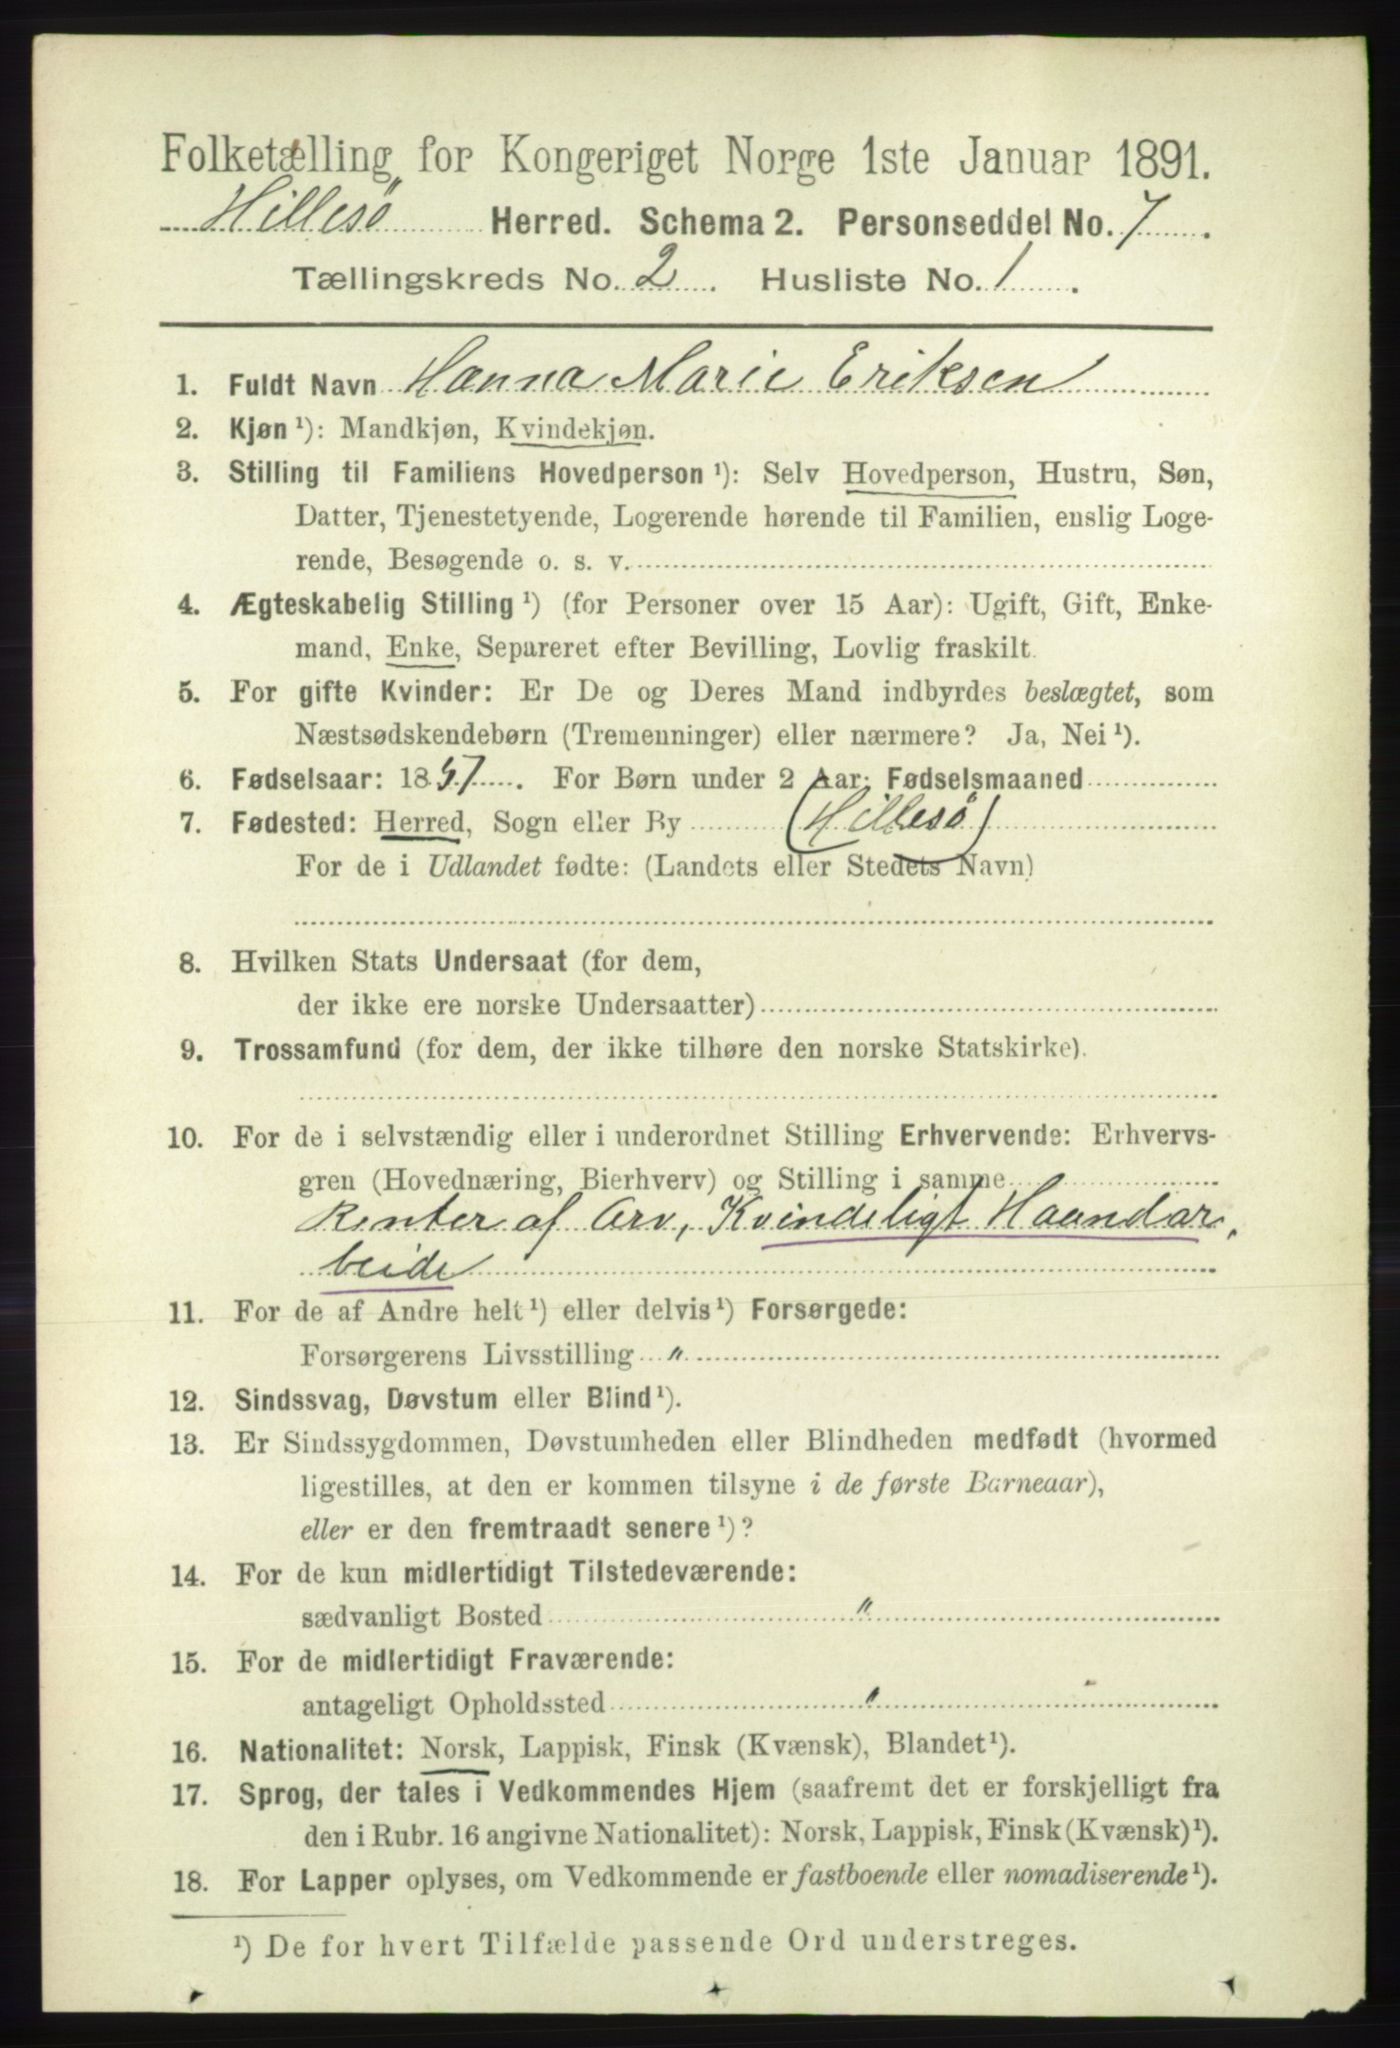 Folketælling for Kongeriget Norge 1ste Januar 1891.
Hillesö Herred. Schema 2. Personseddel No. 7
Tællingskreds No. 2. Husliste No. 1.
1. Fuldt Navn Hanna Marie Eriksen
2. Kjøn ¹): Mandkjøn, Kvindekjøn.
3. Stilling til Familiens Hovedperson ¹): Selv Hovedperson, Hustru, Søn,
Datter, Tjenestetyende, Logerende hørende til Familien, enslig Loge-
rende, Besøgende o. s. v.
4. Ægteskabelig Stilling ¹) (for Personer over 15 Aar): Ugift, Gift, Enke-
mand, Enke, Separeret efter Bevilling, Lovlig fraskilt.
5. For gifte Kvinder: Er De og Deres Mand indbyrdes beslægtet, som
Næstsødskendebørn (Tremenninger) eller nærmere? Ja, Nei ¹).
6. Fødselsaar: 1857. For Børn under 2 Aar: Fødselsmaaned
7. Fødested: Herred, Sogn eller By (Hillesö)
For de i Udlandet fødte: (Landets eller Stedets Navn)
8. Hvilken Stats Undersaat (for dem,
der ikke ere norske Undersaatter)
9. Trossamfund (for dem, der ikke tilhøre den norske Statskirke).
10. For de i selvstændig eller i underordnet Stilling Erhvervende: Erhvervs-
gren (Hovednæring, Bierhverv) og Stilling i samme
Renter af Arv, Kvindeligt Haandar,
beide
11. For de af Andre helt ¹) eller delvis ¹) Forsørgede:
Forsørgerens Livsstilling "
12. Sindssvag, Døvstum eller Blind ¹).
13. Er Sindssygdommen, Døvstumheden eller Blindheden medfødt (hvormed
ligestilles, at den er kommen tilsyne i de første Barneaar),
eller er den fremtraadt senere ¹)?
14. For de kun midlertidigt Tilstedeværende:
sædvanligt Bosted "
15. For de midlertidigt Fraværende:
antageligt Opholdssted "
16. Nationalitet: Norsk, Lappisk, Finsk (Kvænsk), Blandet ¹).
17. Sprog, der tales i Vedkommendes Hjem (saafremt det er forskjelligt fra
den i Rubr. 16 angivne Nationalitet): Norsk, Lappisk, Finsk (Kvænsk) ¹).
18. For Lapper oplyses, om Vedkommende er fastboende eller nomadiserende ¹).
¹) De for hvert Tilfælde passende Ord understreges.